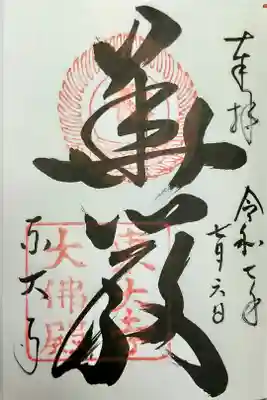 奉拝
令和七年
七月六日
華厳
東大寺
東大寺
大佛殿